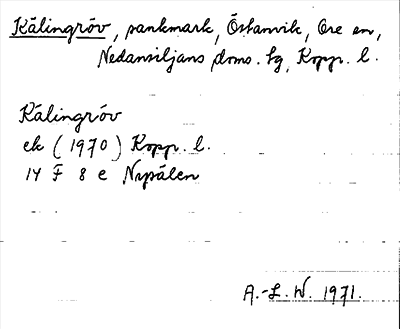 Kälingröv, sankmark, Östanvik, Ore sn,
Nedansiljans doms. tg, Kopp. l.
Kälingröv
ek (1970) Kopp. l.
14 F 8 e Nysälen
A.-L. W. 1971.